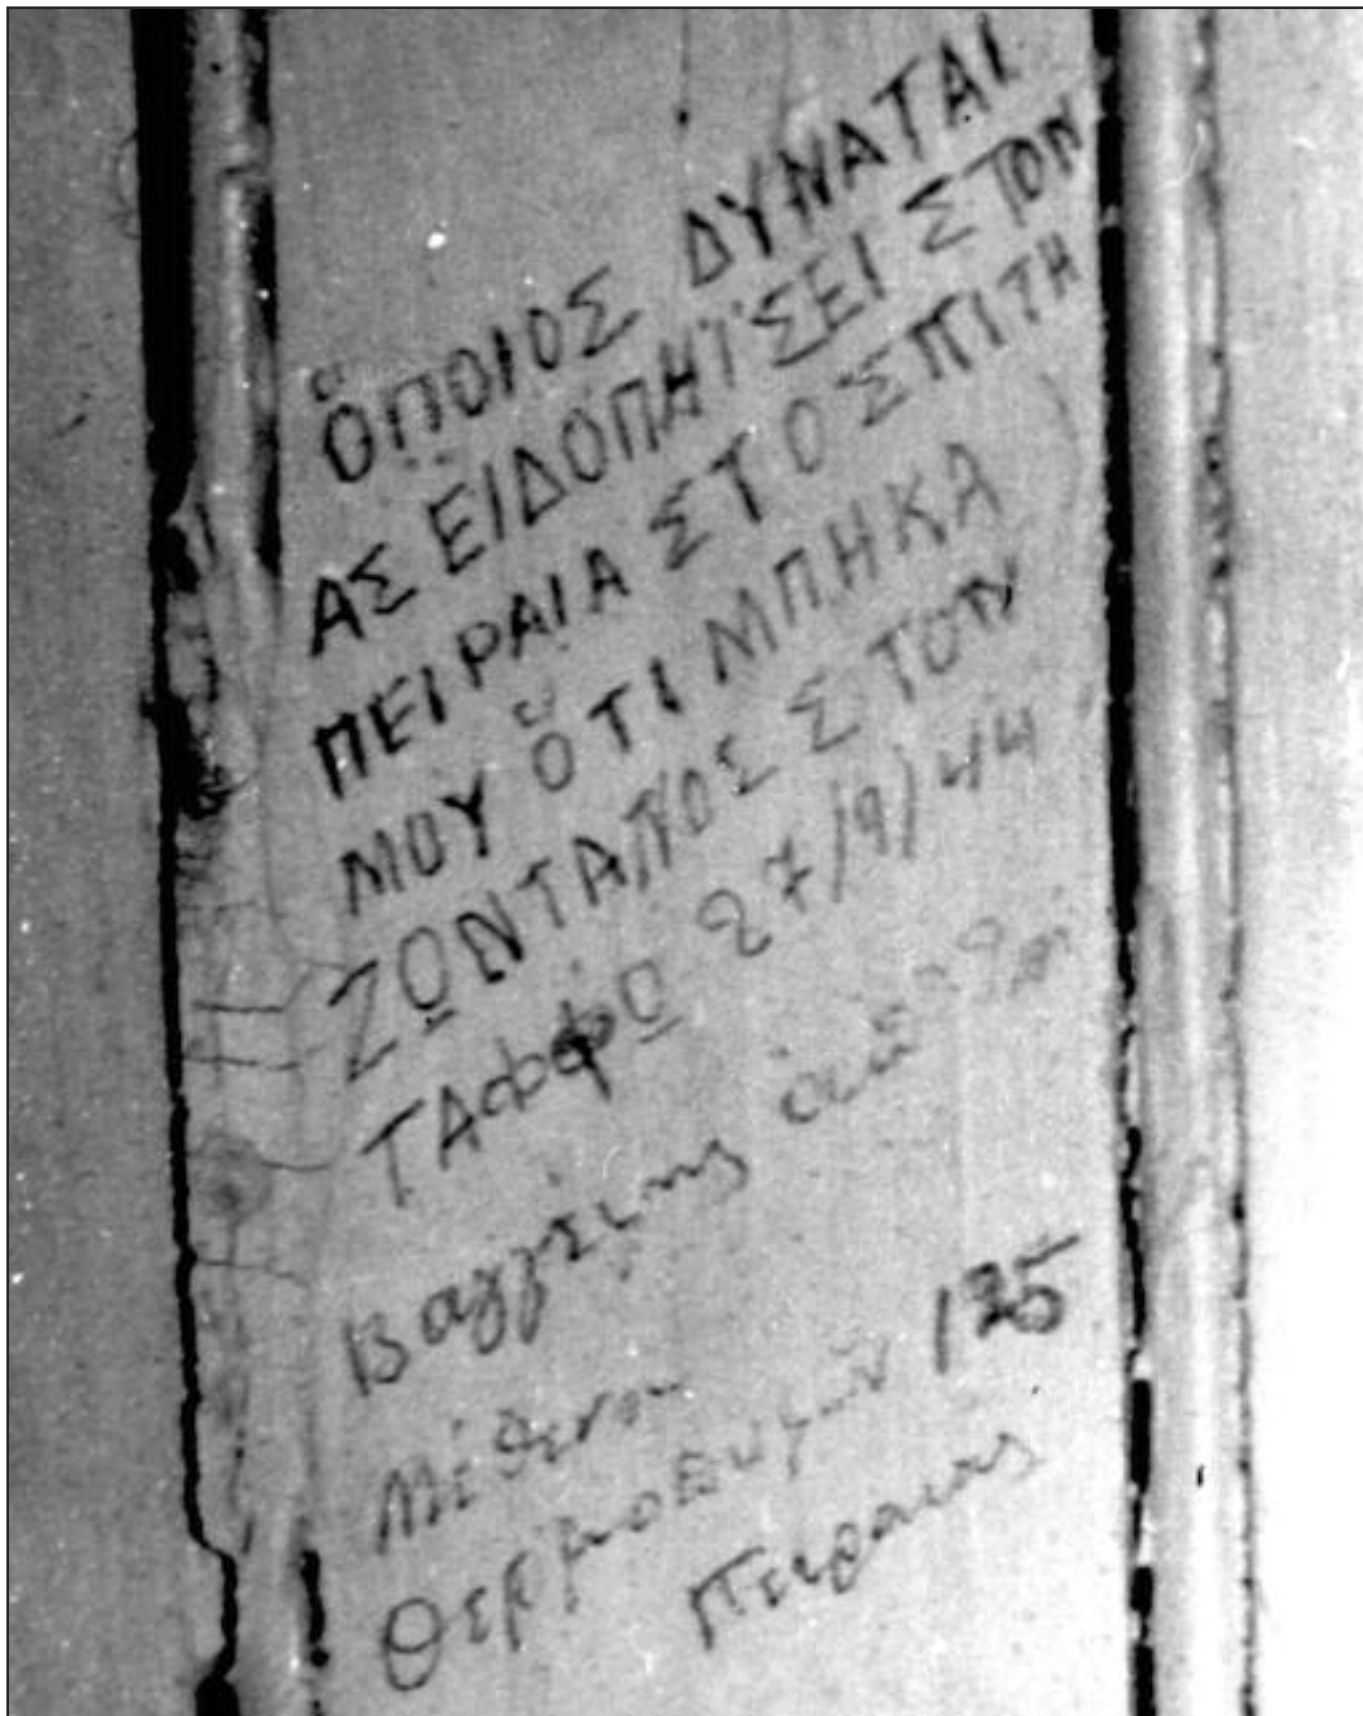 ὍΠΟΙΟΣ ΔΥΝΑΤΑΙ
ΑΣ ΕΙΔΟΠΗΪΣΕΙ ΣΤΟΝ
ΠΕΙΡΑΙΑ ΣΤΟ ΣΠΙΤΗ
ΜΟΥ ὍΤΙ ΜΠΗΚΑ
ΖΩΝΤΑΝΟΣ ΣΤΟΝ
ΤΑΦΦΩ 27/9/44
Βαγγέλης
Θερμοπυλῶν 125
Πειραιας